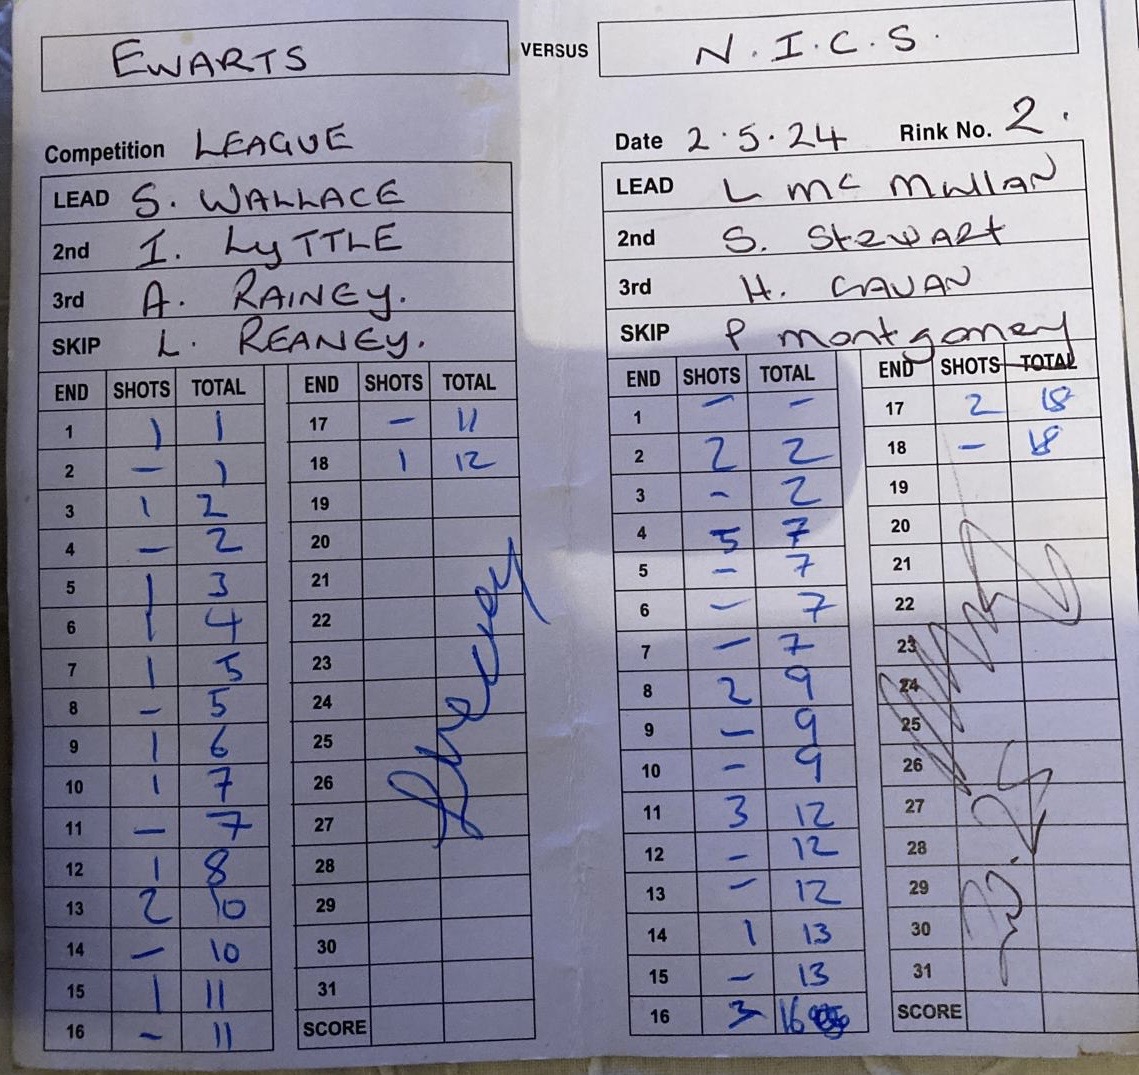 EWARTS VERSUS N.I.C.S.
Competition LEAGUE Date 2.5.24 Rink No. 2.
LEAD S. WALLACE
2nd I. LyTTLE
3rd A. RAINEY.
SKIP L. REANEY.
END SHOTS TOTAL END SHOTS TOTAL
1 1 1 17 - 11
2 - 1 18 1 12
3 1 2 19
4 - 2 20
5 1 3 21
6 1 4 22
7 1 5 23
8 - 5 24
9 1 6 25
10 1 7 26
11 - 7 27
12 1 8 28
13 2 10 29
14 - 10 30
15 1 11 31
16 - 11 SCORE
LEAD L Mc Mullan
2nd S. Stewart
3rd H. GAVAN
SKIP P montgomery
END SHOTS TOTAL END SHOTS TOTAL
1 - - 17 2 18
2 2 2 18 - 18
3 - 2 19
4 5 7 20
5 - 7 21
6 - 7 22
7 - 7 23
8 2 9 24
9 - 9 25
10 - 9 26
11 3 12 27
12 - 12 28
13 - 12 29
14 1 13 30
15 - 13 31
16 3 16 SCORE